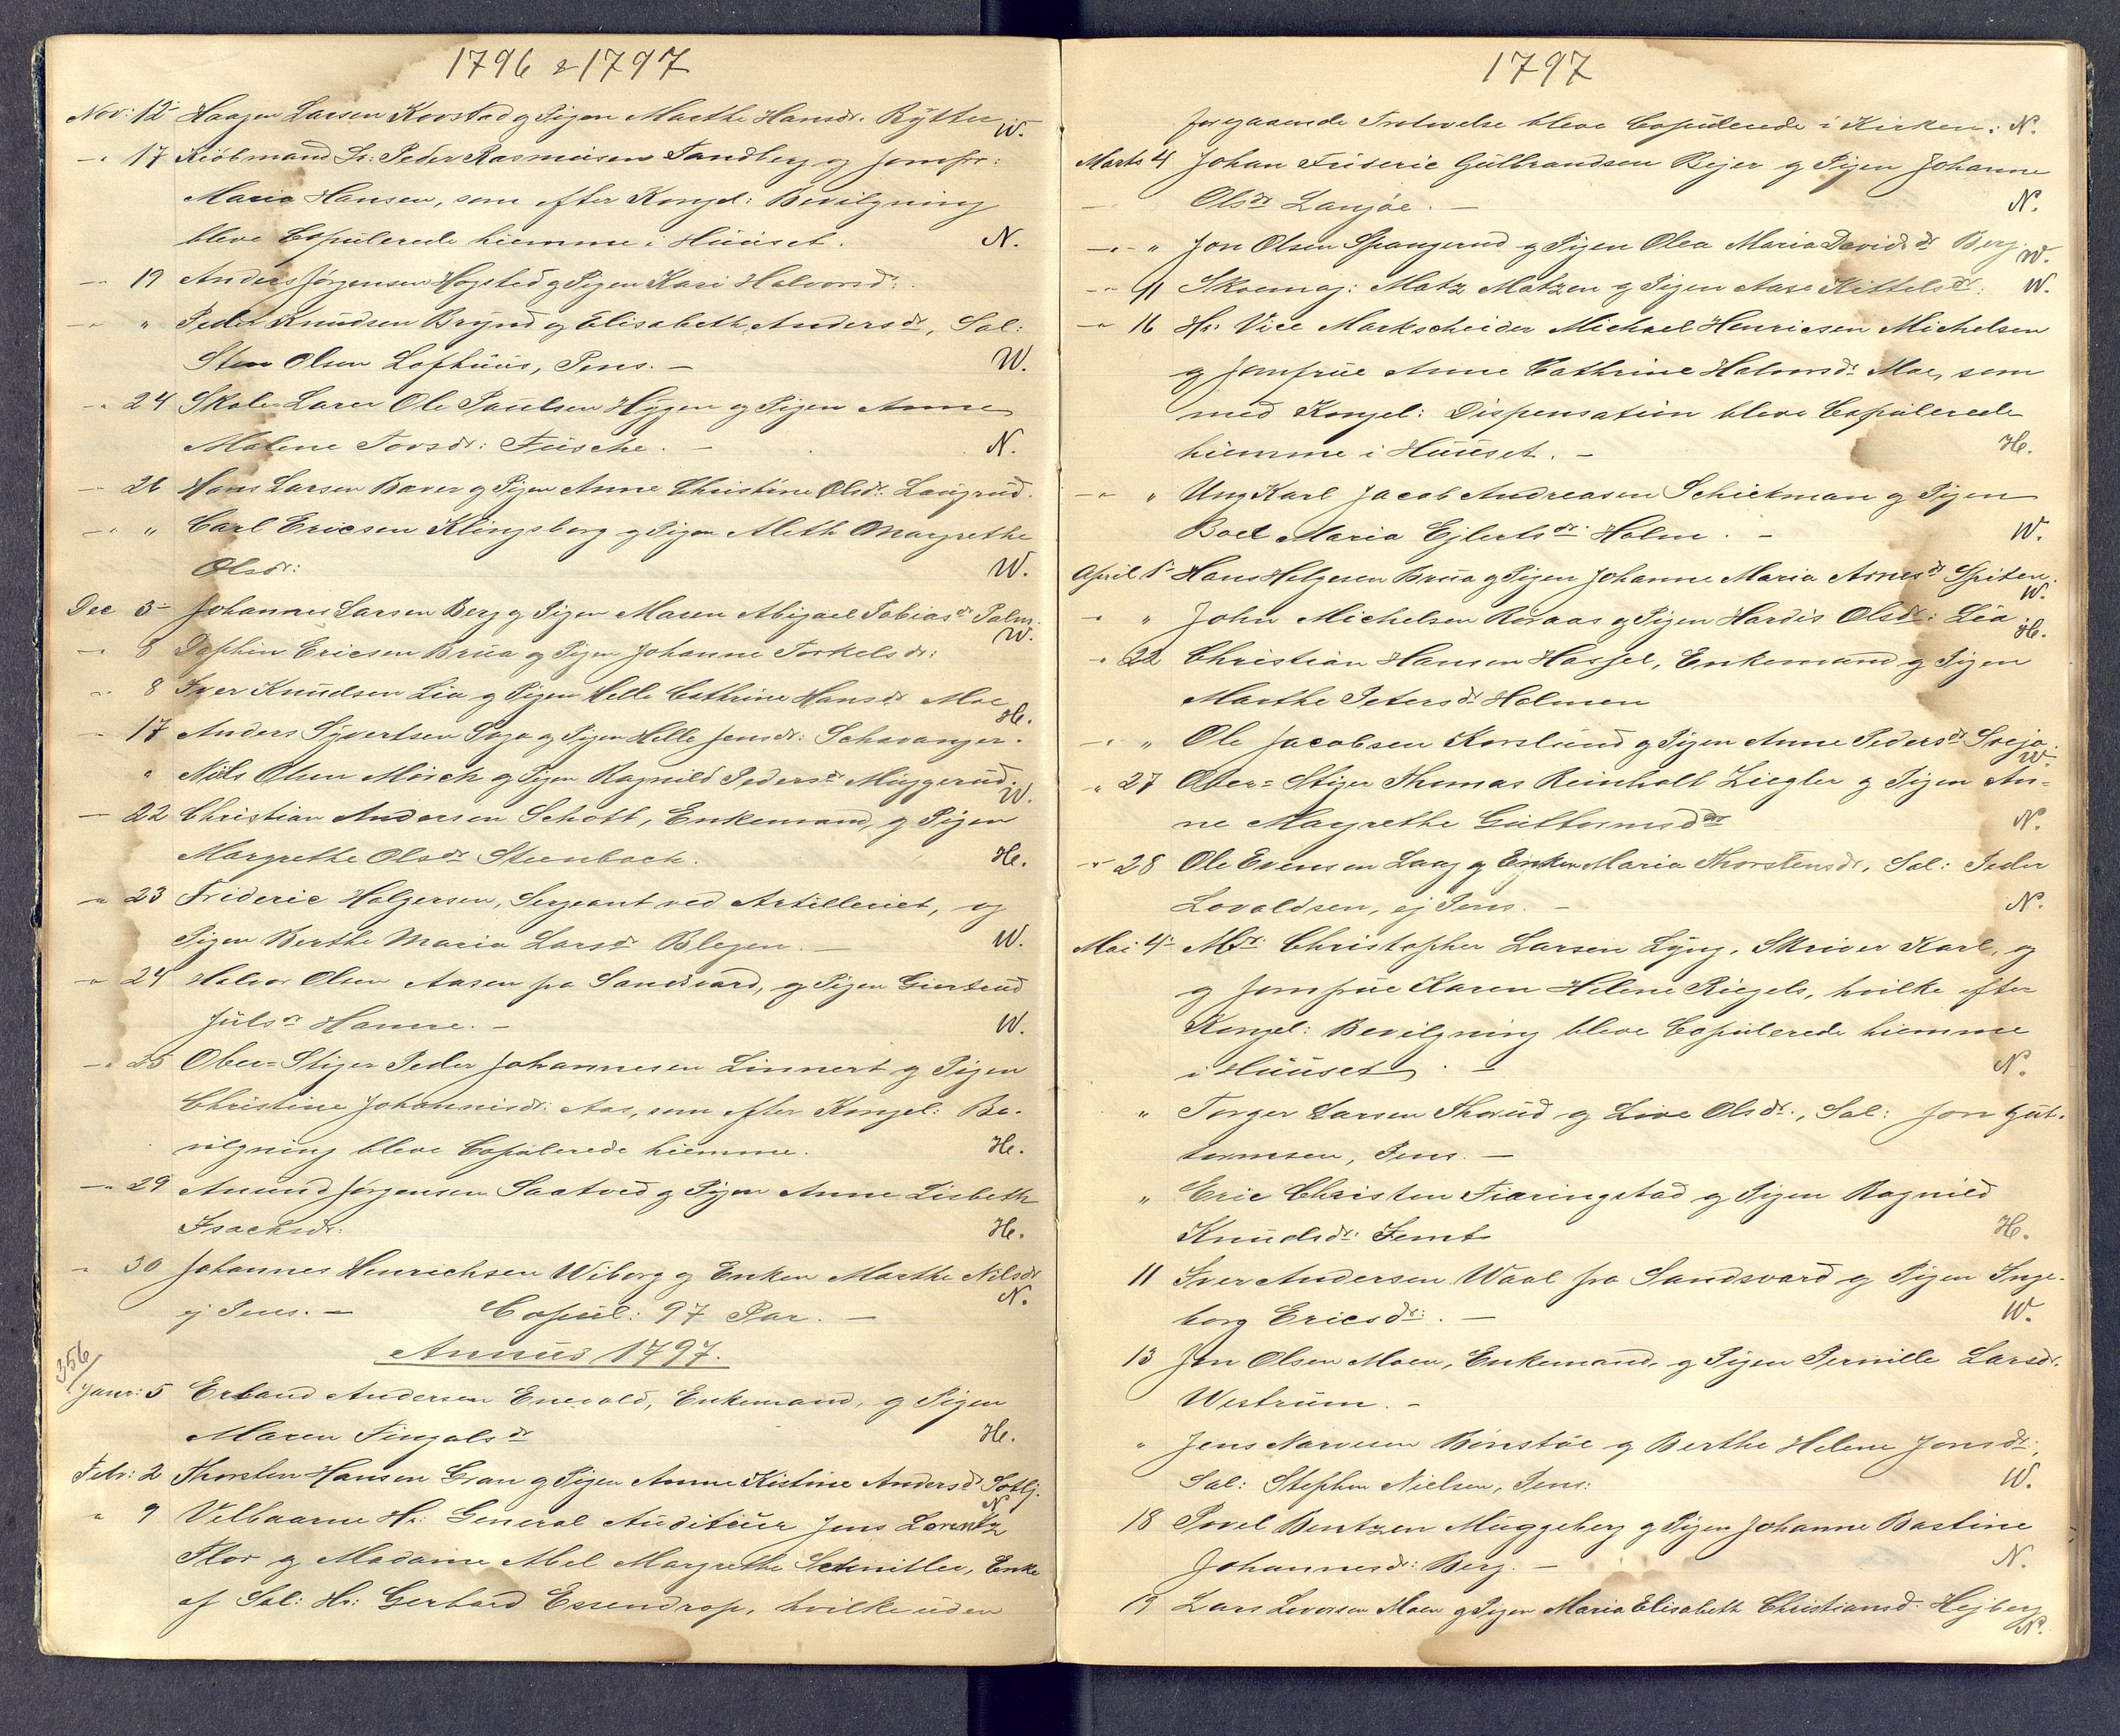 1796 & 1797
Nov: 12 Haagen Larsen Korstad og Pigen Marthe Hansdr. Rÿtter W.
" 17 Kiöbmand Sr: Peder Rasmusen Sandberg og Jomfr:
Maria Hansen, som efter Kongel: Bevilgning
bleve Copulerede hiemme i Huuset. N.
" 19 Anders Jörgensen Hogsted og Pigen Kari Halvorsdr.
" " Peder Knudsen Brÿnd og Elisabeth Andersdr, Sal:
Sten Olsen Lofthuus, Pens. - W.
" 24 Skole-Lærer Ole Paulsen Hÿgen og Pigen Anne
Malene Torsdr: Fusche. - N.
" 26 Hans Larsen Baver og Pigen Anne Christine Olsdr. Laugrud.
" " Carl Ericsen Klingsborg og Pigen Aleth Margrethe
Olsdr: W.
Dec 3 Johannes Larsen Berg og Pigen Maren Abigael Tobiasdr Palm. W.
" 8 Dophin Ericsen Brua og Pigen Johanne Torkelsdr:
" 8 Iver Knudsen Lia og Pigen Helle Cathrine Hansdr Moe He.
" 17 Anders Sÿvertsen Poja og Pigen Helle Jensdr: Schavanger.
" Niels Olsen Mörch og Pigen Ragnild Pedersdr Muggerud. W.
" 22 Christian Andersen Schott, Enkemand, og Pigen
Margrethe Olsdr Steenbach. He.
" 23 Frideric Holgersen, Sergeant ved Artilleriet, og
Pigen Berthe Maria Larsdr Blegen. - W.
" 24 Halvor Olsen Aasen fra Sandsvard, og Pigen Giertrud
Julsdr Hanne. - W.
" 25 Ober-Stiger Peder Johannesen Linnert og Pigen
Christine Johannisdr: Aas, som efter Kongel: Be-
vilgning bleve Copulerede hiemme. He.
" 29 Amund Jörgensen Saatved og Pigen Anne Lisbeth
Isachsdr: He.
" 30 Johannes Henrichsen Wiborg og Enken Marthe Nilsdr N.
ej Pens. - Copul: 97 Par. -
Annus 1797.
356
Janr: 5 Erland Andersen Enevald, Enkemand, og Pigen
Maren Fingalsdr He.
Febr: 2 Thorsten Hansen Gran og Pigen Anne Kistine Andersdr Sotlj. N
" 9 Velbaarne Hr: General Auditeur Jens Lorentz
Flor og Madame Abel Margrethe Schnitler, Enke
af Sal: Hr: Gerhard Essendrop, hvilke uden
1797
foregaaende Trolovelse bleve Copulerede i Kirken. N.
Marts 4 Johan Frideric Gulbrandsen Bejer og Pigen Johanne
Olsdr Langöe. - N.
" " Jon Olsen Spangerud og Pigen Olea Maria Davidsdr Berg. W.
" 11 Skoemag: Matz Matzen og Pigen Aase Kittelsdr: W.
" 16 Hr: Vice Markscheider Michael Henricsen Michelsen
og Jomfrue Anne Cathrine Halvorsdr Moe, som
med Kongel: Dispensation bleve Copulerede
hiemme i Huuset. - He.
" " Ung Karl Jacob Andreasen Schickman og Pigen
Boel Maria Ejlertsdr Holm. - W.
April 1 Hans Helgesen Brua og Pigen Johanne Maria Arnesdr Spiten. W.
" " John Michelsen Roraas og Pigen Hardis Olsdr: Lia He.
" 22 Christian Hansen Hassel, Enkemand og Pigen
Marthe Petersdr Holmen
" " Ole Jacobsen Korslund og Pigen Anne Pedersdr Sveje W.
" 27 Ober-Stiger Thomas Reinholt Ziegler og Pigen An-
ne Magrethe Guttormsdr N.
" 28 Ole Evensen Laag og Enken Maria Thorstensdr, Sal: Peder
Lovaldsen, ej Pens. - N.
Mai 4 Mr: Christopher Larsen Lÿng, Skriver Karl, og
og Jomfrue Karen Helene Riegels, hvilke efter
Kongel: Bevilgning bleve Copulerede hiemme
i Huuset. - N.
" Torger Larsen Thorud og Live Olsdr., Sal: Jon Gut-
tormsen, Pens. -
" Eric Christen Fiaringstad og Pigen Ragnild
Knudsdr: Femt H.
11 Iver Andersen Waal fra Sandsvard og Pigen Inge-
borg Ericsdr: - W.
13 Jon Olsen Moen, Enkemand, og Pigen Pernille Larsdr.
Westrum. -
" Jens Narvesen Bonstöe og Berthe Helene Jonsdr:,
Sal: Stephen Nielsen, Pens: W.
18 Povel Bentzen Muggeberg og Pigen Johanne Bastine
Johannesdr: Berg. - N.
19 Lars Levorsen Moen og Pigen Maria Elisabeth Christiansdr. Hejberg N.